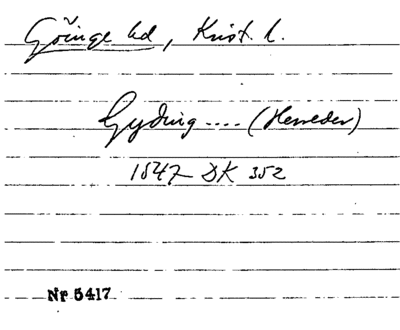 Göinge hd, Krist. l.
Gyding .... (Herreder)
1547 DK 352
Nr 5417